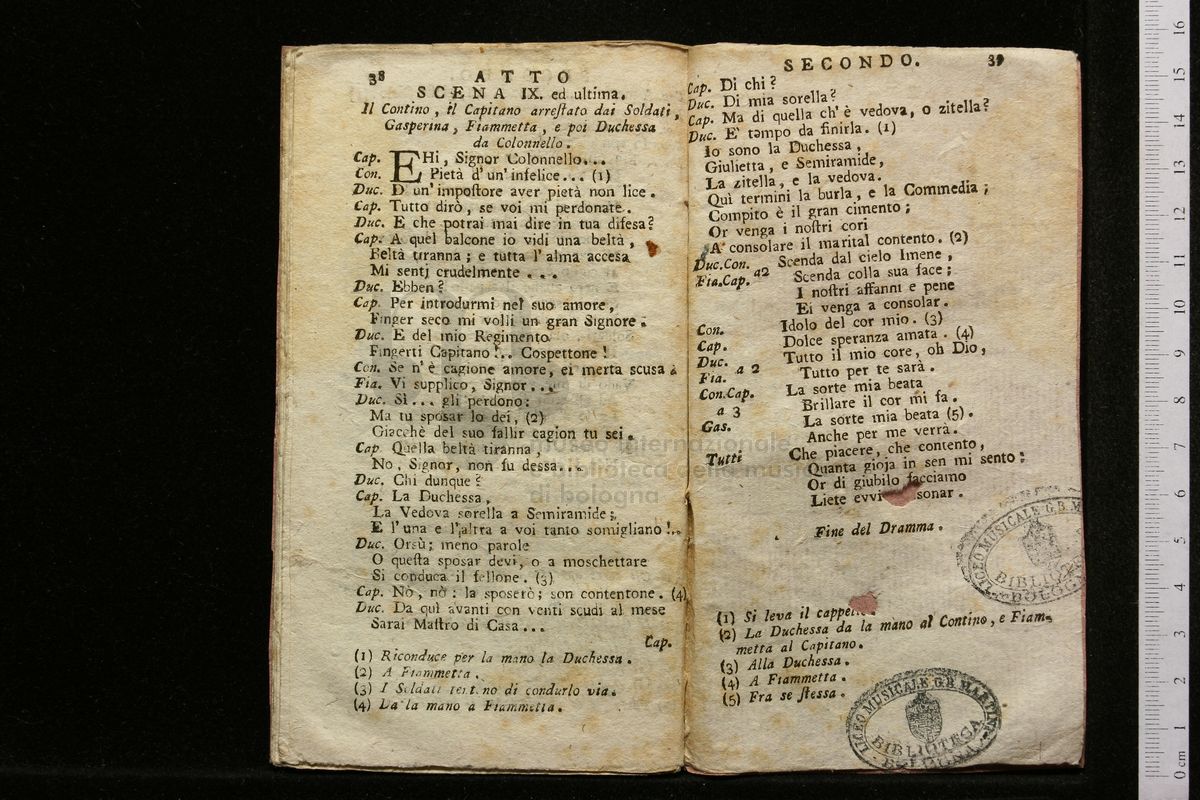 38
ATTO
SCENA IX. ed ultima.
Il Contino, il Capitano arreſtato dai Soldati,
Gasperina, Fiammetta, e poi Duchessa
da Colonnello.
Cap. EHi, Signor Colonnello...
Con. Pietà d'un'infelice... (1)
Duc. D'un'impoſtore aver pietà non lice.
Cap. Tutto dirò, se voi mi perdonate.
Duc. E che potrai mai dire in tua difesa?
Cap. A quel balcone io vidi una beltà,
Beltà tiranna; e tutta l'alma accesa
Mi sentj crudelmente ...
Duc. Ebben?
Cap. Per introdurmi nel suo amore,
Finger seco mi volli un gran Signore.
Duc. E del mio Regimento
Fingerti Capitano!.. Cospettone!
Con. Se n'è cagione amore, ei merta scusa.
Fia. Vi supplico, Signor...
Duc. Sì... gli perdono:
Ma tu sposar lo dei, (2)
Giacchè del suo fallir cagion tu sei.
Cap. Quella beltà tiranna,
No, Signor, non fu dessa...
Duc. Chi dunque?
Cap. La Duchessa,
La Vedova sorella a Semiramide;
E l'una e l'altra a voi tanto somigliano!..
Duc. Orsù; meno parole
O queſta sposar devi, o a moschettare
Si conduca il fellone. (3)
Cap. Nò, nò: la sposerò; son contentone. (4)
Duc. Da quì avanti con venti scudi al mese
Sarai Maſtro di Casa...
Cap.
(1) Riconduce per la mano la Duchessa.
(2) A Fiammetta.
(3) I Soldati tentano di condurlo via.
(4) Da la mano a Fiammetta.
SECONDO.
39
Cap. Di chi?
Duc. Di mia sorella?
Cap. Ma di quella ch'è vedova, o zitella?
Duc. E' tempo da finirla. (1)
Io sono la Duchessa,
Giulietta, e Semiramide,
La zitella, e la vedova.
Quì termini la burla, e la Commedia;
Compito è il gran cimento;
Or venga i noſtri cori
A consolare il marital contento. (2)
Duc.Con. Scenda dal cielo Imene,
Fia.Cap. a2 Scenda colla sua face;
I noſtri affanni e pene
Ei venga a consolar.
Con. Idolo del cor mio. (3)
Cap. Dolce speranza amata. (4)
Duc. Tutto il mio core, oh Dio,
Fia. a 2 Tutto per te sarà.
Con.Cap. La sorte mia beata
a 3 Brillare il cor mi fa.
Gas. La sorte mia beata (5).
Anche per me verrà.
Tutti Che piacere, che contento,
Quanta gioja in sen mi sento:
Or di giubilo facciamo
Liete evvi sonar.
Fine del Dramma.
(1) Si leva il cappello.
(2) La Duchessa da la mano al Contino, e Fiam-
metta al Capitano.
(3) Alla Duchessa.
(4) A Fiammetta.
(5) Fra se ſtessa.
LICEO MUSICALE G.B. M
BIBLIO
BOLOGN
LICEO MUSICALE G.B. MARTINI
BIBLIOTECA
BOLOGNA
museo internazionale
e biblioteca della musica
di bologna
0 cm 1 2 3 4 5 6 7 8 9 10 11 12 13 14 15 16